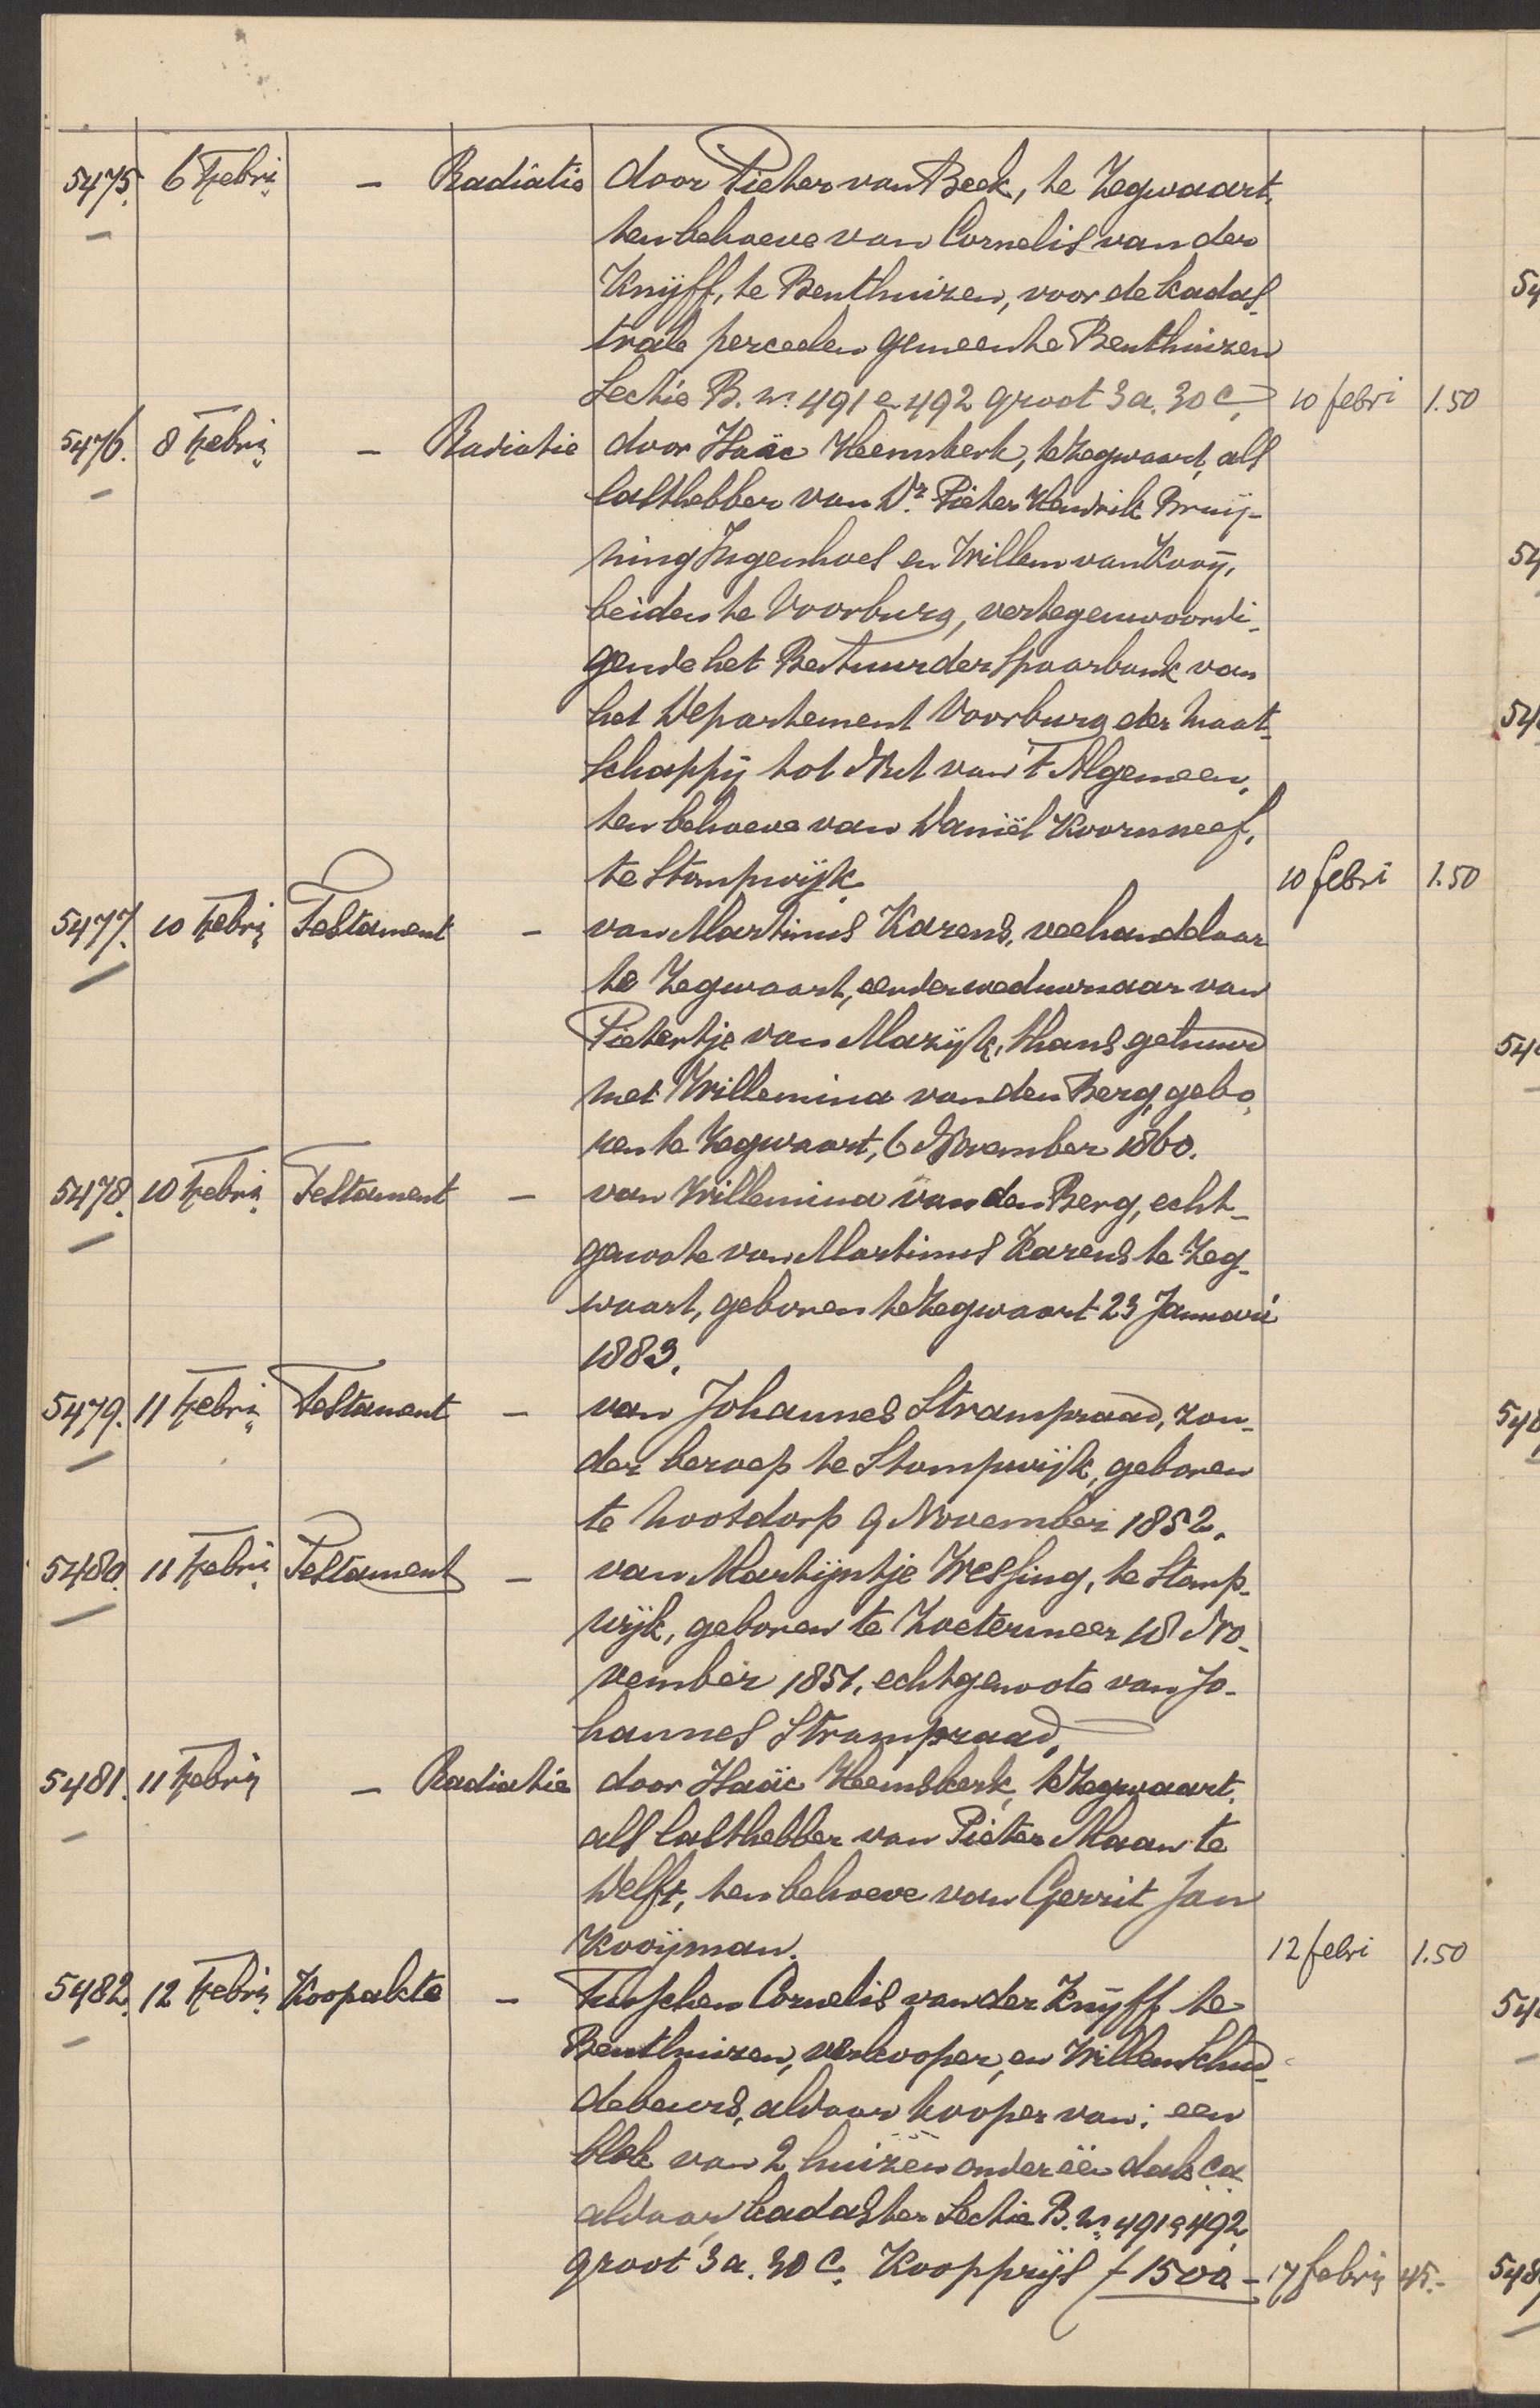 5475. 6 Febri - Radiatie door Pieter van Beek, te Zegwaart,
ten behoeve van Cornelis van der
Knijff, te Benthuizen, voor de kadas-
trale perceelen gemeente Benthuizen
Sectie B. nrs. 491 en 492 groot 3 a. 30 c. 10 febri 1.50
5476. 8 Febri - Radiatie door Isaäc Heemskerk, te Zegwaart, als
lasthebber van Dr. Pieter Hendrik Bruij-
ning Ingenhoes en Willem van Kooij,
beiden te Voorburg, vertegenwoordi-
gende het Bestuur der Spaarbank van
het Departement Voorburg der Maat-
schappij tot Nut van 't Algemeen,
ten behoeve van Daniël Koornneef,
te Stompwijk. 10 febri 1.50
5477. 10 Febri Testament - van Martinus Karens, veehandelaar
te Zegwaart, eerder weduwnaar van
Pietertje van Mazijk, thans gehuwd
met Willemina van den Berg, gebo-
ren te Zegwaart, 6 November 1860.
5478. 10 Febri Testament - van Willemina van den Berg, echt-
genoote van Martinus Karens te Zeg-
waart, geboren te Zegwaart 23 Januari
1883.
5479. 11 Febri Testament - van Johannes Strampraad, zon-
der beroep te Stompwijk, geboren
te Nootdorp 9 November 1852.
5480. 11 Febri Testament - van Martijntje Wessing, te Stomp-
wijk, geboren te Zoetermeer 18 No-
vember 1851, echtgenoote van Jo-
hannes Strampraad.
5481. 11 Febri - Radiatie door Isaäc Heemskerk, te Zegwaart,
als lasthebber van Pieter Maan te
Delft, ten behoeve van Gerrit Jan
Kooijman. 12 febri 1.50
5482. 12 Febri Koopakte - Tusschen Cornelis van der Knijff te
Benthuizen, verkooper, en Willem Schud-
debeurs, aldaar kooper van: een
blok van 2 huizen onder één dak ca
aldaar, kadaster Sectie B. nrs 491 & 492
groot 3 a. 30 c. Koopprijs f 1500 - 17 febri 45.-